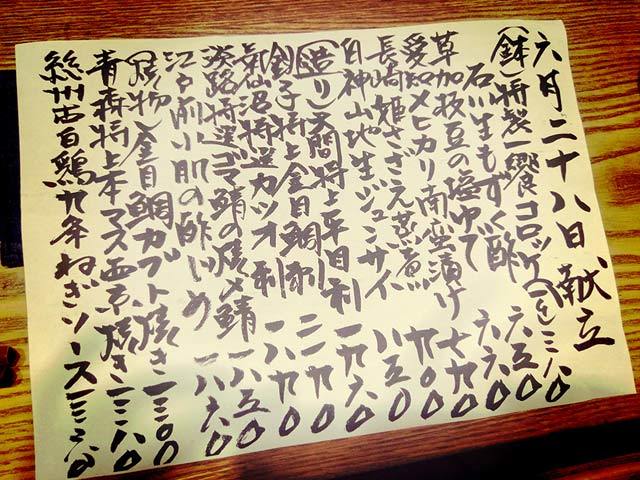 六月二十八日 献立
(鉢)特製一饗コロッケ
石川生もずく酢 六五〇
草加枝豆の塩ゆで 六六〇
愛知メヒカリ南蛮漬け 七九〇
長崎姫さざえ煮 九〇〇
白神山地生ジュンサイ 八五〇
(造り)天間特上平目刺 一九六〇
銚子特上金目鯛刺 二一九〇
気仙沼特選カツオ刺 一八九〇
淡路特選ゴマ鯖の焼〆鯖 一八五〇
江戸前小肌の酢〆 一八六〇
(焼物)金目鯛カブト焼き 一三〇〇
青森特上本マス西京焼き 一三八〇
総州古白鶏九条ねぎソース 一三三〇